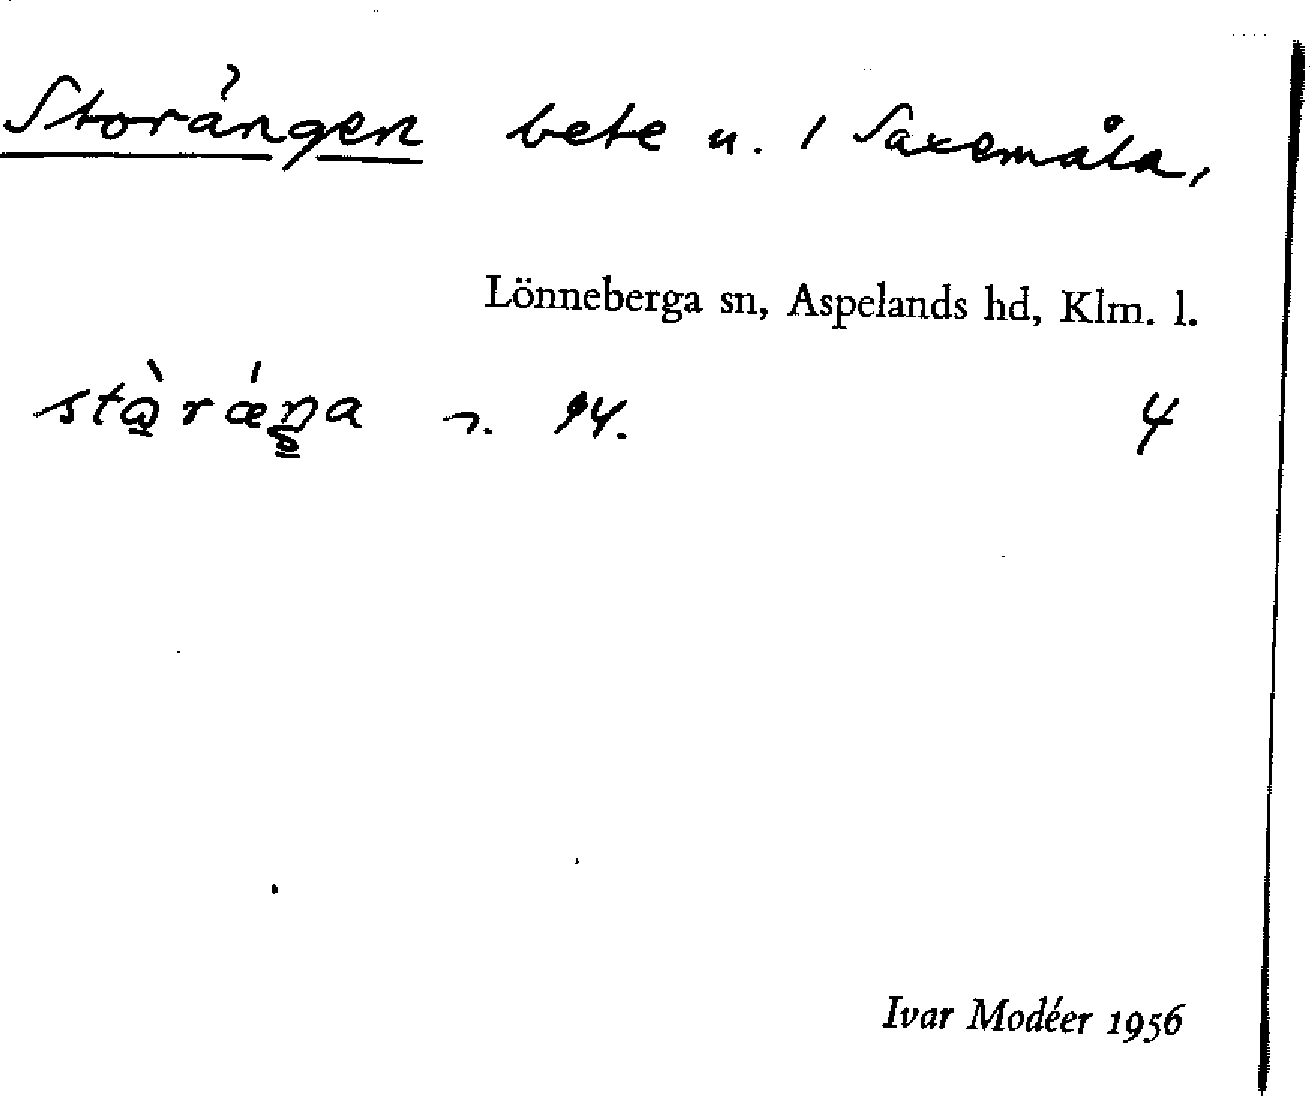 Storängen bete u. / Saxemåla,
Lönneberga sn, Aspelands hd, Klm. l.
4
Ivar Modéer 1956